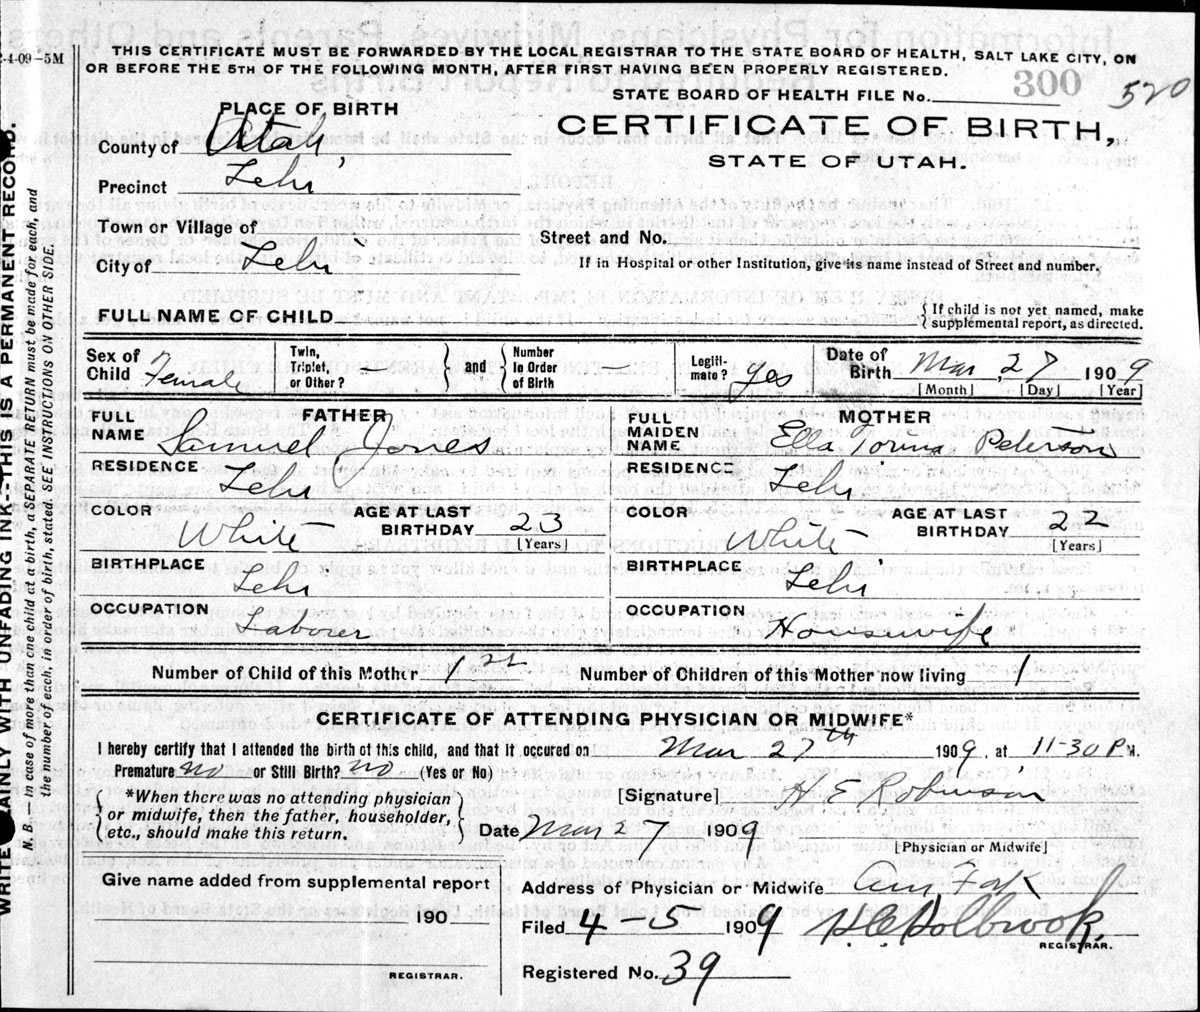 2-4-09-5M
THIS CERTIFICATE MUST BE FORWARDED BY THE LOCAL REGISTRAR TO THE STATE BOARD OF HEALTH, SALT LAKE CITY, ON
OR BEFORE THE 5TH OF THE FOLLOWING MONTH, AFTER FIRST HAVING BEEN PROPERLY REGISTERED.
STATE BOARD OF HEALTH FILE No. 300 520
PLACE OF BIRTH
CERTIFICATE OF BIRTH,
STATE OF UTAH.
County of Utah
Precinct Lehi
Town or Village of
Street and No.
City of Lehi
If in Hospital or other Institution, give its name instead of Street and number.
FULL NAME OF CHILD
{If child is not yet named, make
supplemental report, as directed.
Sex of Child Female
Twin, Triplet, or Other? } and { Number In Order of Birth
Legiti-mate? yes
Date of Birth Mar, 27 1909
[Month] [Day] [Year]
FATHER
FULL NAME Samuel Jones
RESIDENCE Lehi
COLOR White
AGE AT LAST BIRTHDAY 23
[Years]
BIRTHPLACE Lehi
OCCUPATION Laborer
MOTHER
FULL MAIDEN NAME Ella Peterson
RESIDENCE Lehi
COLOR White
AGE AT LAST BIRTHDAY 22
[Years]
BIRTHPLACE Lehi
OCCUPATION Housewife
Number of Child of this Mother 1st
Number of Children of this Mother now living 1
CERTIFICATE OF ATTENDING PHYSICIAN OR MIDWIFE*
I hereby certify that I attended the birth of this child, and that it occured on Mar 27th 1909, at 11-30 P M.
Premature no or Still Birth? no (Yes or No)
{*When there was no attending physician
or midwife, then the father, householder,
etc., should make this return.}
[Signature] H E Robinson
Date Mar 27 1909
[Physician or Midwife]
Give name added from supplemental report
190
REGISTRAR.
Address of Physician or Midwife Am Fork
Filed 4-5 1909 H.C. Holbrook.
REGISTRAR.
Registered No. 39
WRITE PLAINLY WITH UNFADING INK--THIS IS A PERMANENT RECORD.
N. B.—In case of more than one child at a birth, a SEPARATE RETURN must be made for each, and
the number of each, in order of birth, stated. SEE INSTRUCTIONS ON OTHER SIDE.